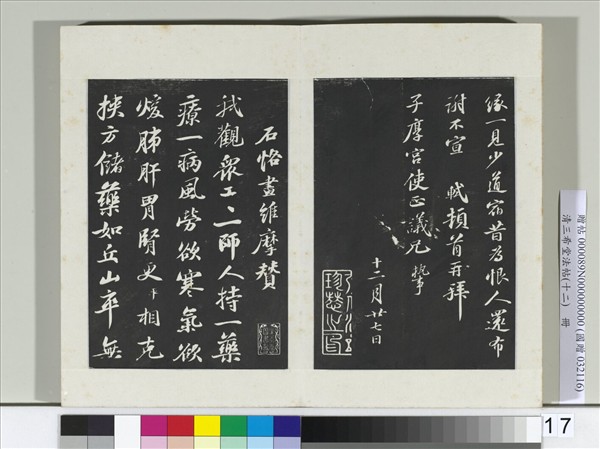 緣一見少道宿昔爲恨人還布
謝不宣　軾頓首再拜
子厚宮使正議兄執事
十二月廿七日
石恪畫維摩贊
我觀衆工工一師人持一藥
療一病風勞欲寒氣欲
煖肺肝胃腎更相克
挾方儲藥如丘山卒無
贈帖 000089N000000000 (國贈 032116)
清三希堂法帖(十二)　冊
17